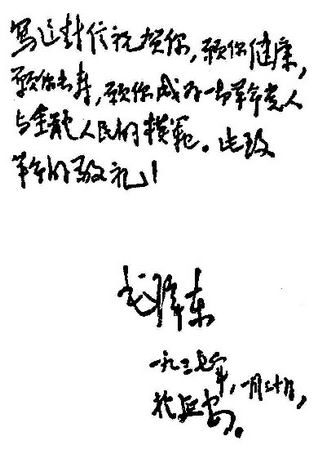 寫这封信祝贺你，願你健康，
願你长寿，願你成为一切革命党人
与全體人民的模範。此致
革命的敬礼！
毛泽东
一九三七年，一月三十日，
於延安。